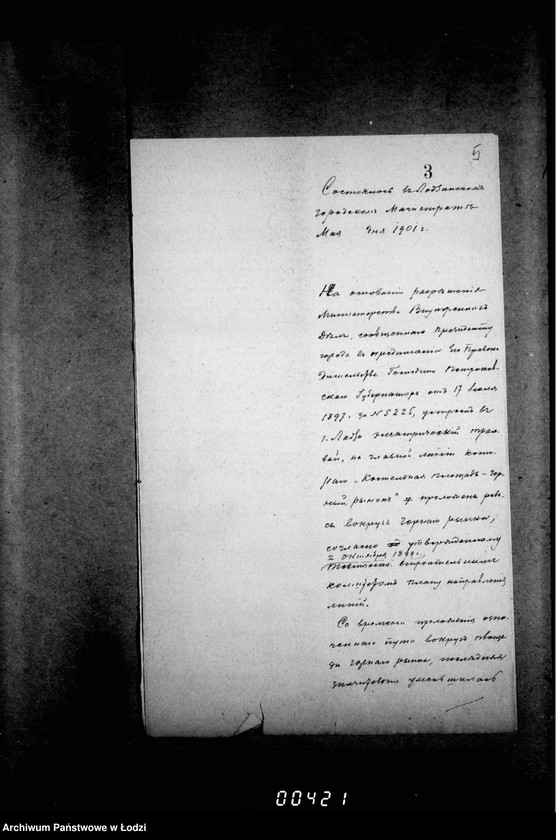 5
3
Состоялось въ Лодзинскомъ
городскомъ Магистратѣ
Мая дня 1901 г.
На основаніи разрѣшенія
Министерства Внутреннихъ
Дѣлъ, сообщеннаго Президенту
города въ предписаніи Его Превосхо-
дительства Господина Петроков-
скаго Губернатора отъ 17 Іюля
1897 г. за № 5225, устроенъ въ
г. Лодзи электрическій трам-
вай, на главной линіи кото-
раго „Костельная площадь - Гор-
ный рынокъ" проложены рель-
сы вокругъ Горнаго рынка,
согласно утвержденному
2 Октября 1899 г.
строительнымъ
комитетомъ плану направленія
линій.
Со времени проложенія озна-
ченнаго пути вокругъ площа-
ди Горнаго рынка, послѣдняя
значительно уменьшилась
00421
Archiwum Państwowe w Łodzi